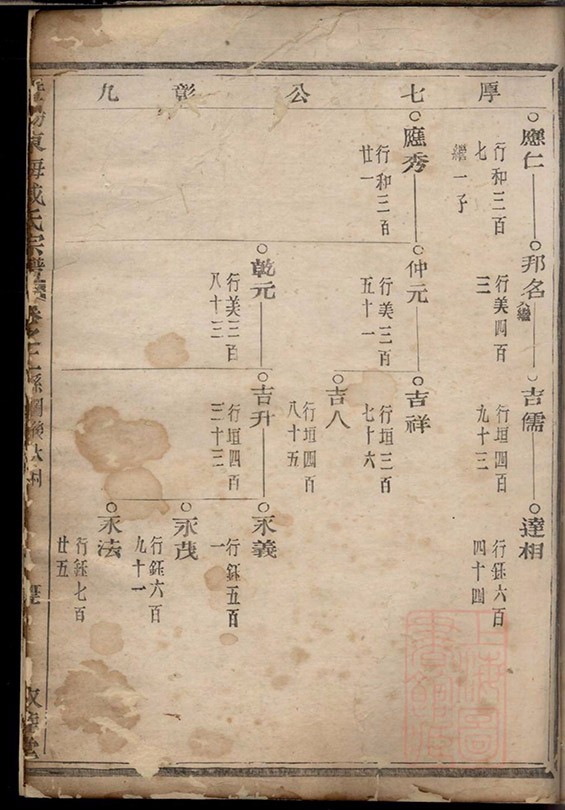 厚七公彰九
應仁
行和三百
七
繼一子
邦名
入繼
行美四百
三
吉儒
行垣四百
九十三
達相
行鈺六百
四十四
應秀
行和三百
廿一
仲元
行美三百
五十一
吉祥
行垣三百
七十六
吉人
行垣四百
八十五
乾元
行美三百
八十三
吉升
行垣四百
三十三
永義
行鈺五百
一
永茂
行鈺六百
九十一
永法
行鈺七百
廿五
東海
氏宗譜